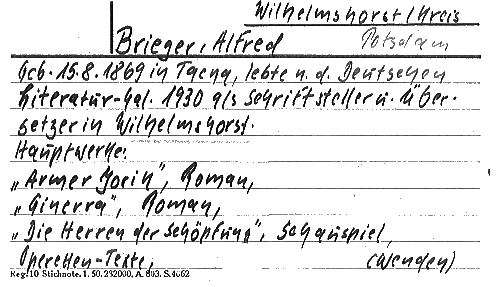 Wilhelmshorst/Kreis
Brieger, Alfred Potsdam
Geb. 15.8.1869 in Tacna, lebte n. d. Deutschen
Literatur-Kal. 1930 als Schriftsteller u. Über-
setzer in Wilhelmshorst.
Hauptwerke:
„Armer Jorik", Roman,
„Ginerra", Roman,
„Die Herren der Schöpfung", Schauspiel,
Operetten-Texte, (wenden)
Reg. 10 Stichnote. 1. 50. 232000, A. 803. S. 4662